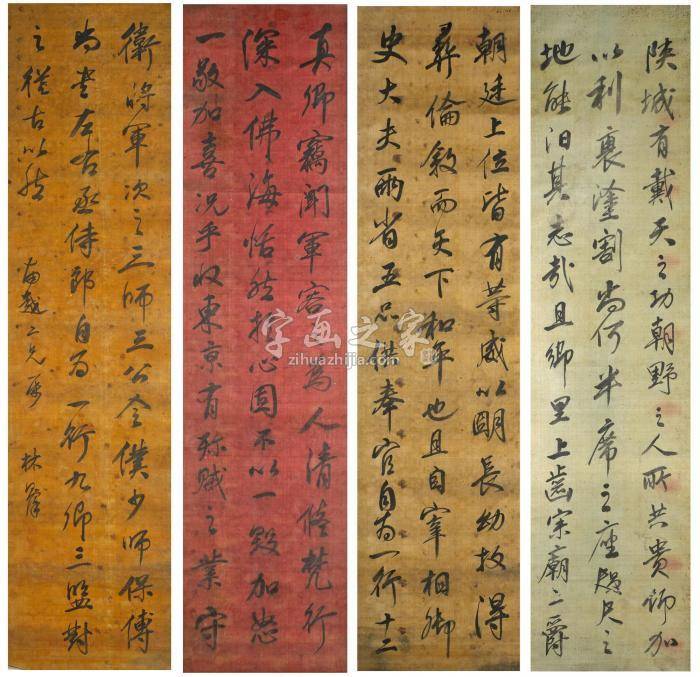 陝城有戴天之功朝野之人所共貴飾加
以利裹塗割尚何半席之座咫尺之
地能汨其志哉且鄉里上齒宗廟上爵
朝廷上位皆有等威以明長幼故得
彝倫敘而天下和平也且自宰相御
史大夫兩省五品供奉官自為一行十二
真卿竊聞軍容為人清修梵行
深入佛海恬然於心固不以一毀加怒
一敬加喜況乎收東京有殄賊之業守
衛將軍次之三師三公令僕少師保傅
尚書左右丞侍郎自為一行九卿三監對
之從古以然
二兄屬
林
字画之家
zihuazhijia.com